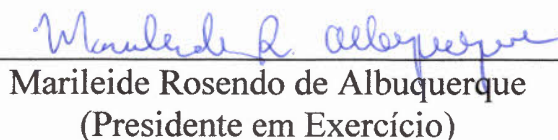 Marileide R. Albuquerque
Marileide Rosendo de Albuquerque
(Presidente em Exercício)